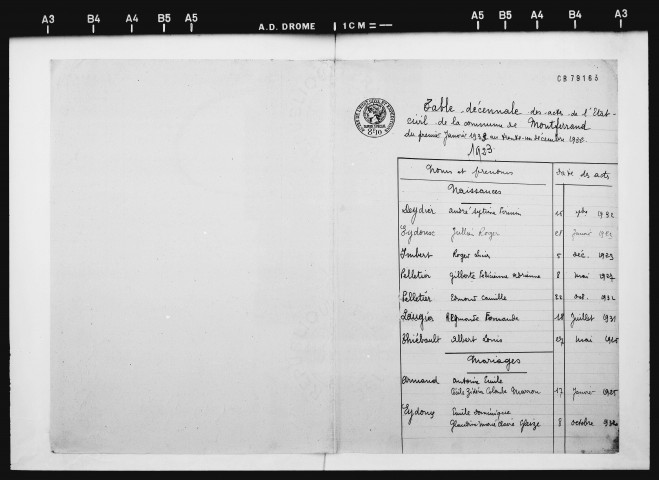 A3 B4 A4 B5 A5 A.D. DROME 1CM = A5 B5 A4 B4 A3
CB79163
Table décennale des actes de l'Etat-
civil de la commune de Montferrand
du premier Janvier au trente-un décembre
1923
Noms et prénoms date des actes
Naissances
Deydier andré Firmin 16 1932
Eydoux Jullien Roger 28 janvier
Imbert Roger 5 déc. 1923
Pelletier Gilberte adrienne 8 mai 1927
Pelletier Edmond Camille 22 1932
Laugier Raymonde Fernande 18 Juillet 1931
Thiébault Albert Louis 27 mai
Mariages
Armand Antonin Emile
17 Janvier 1925
Eydoux Emile Dominique
Claudine Marie Claire 8 octobre